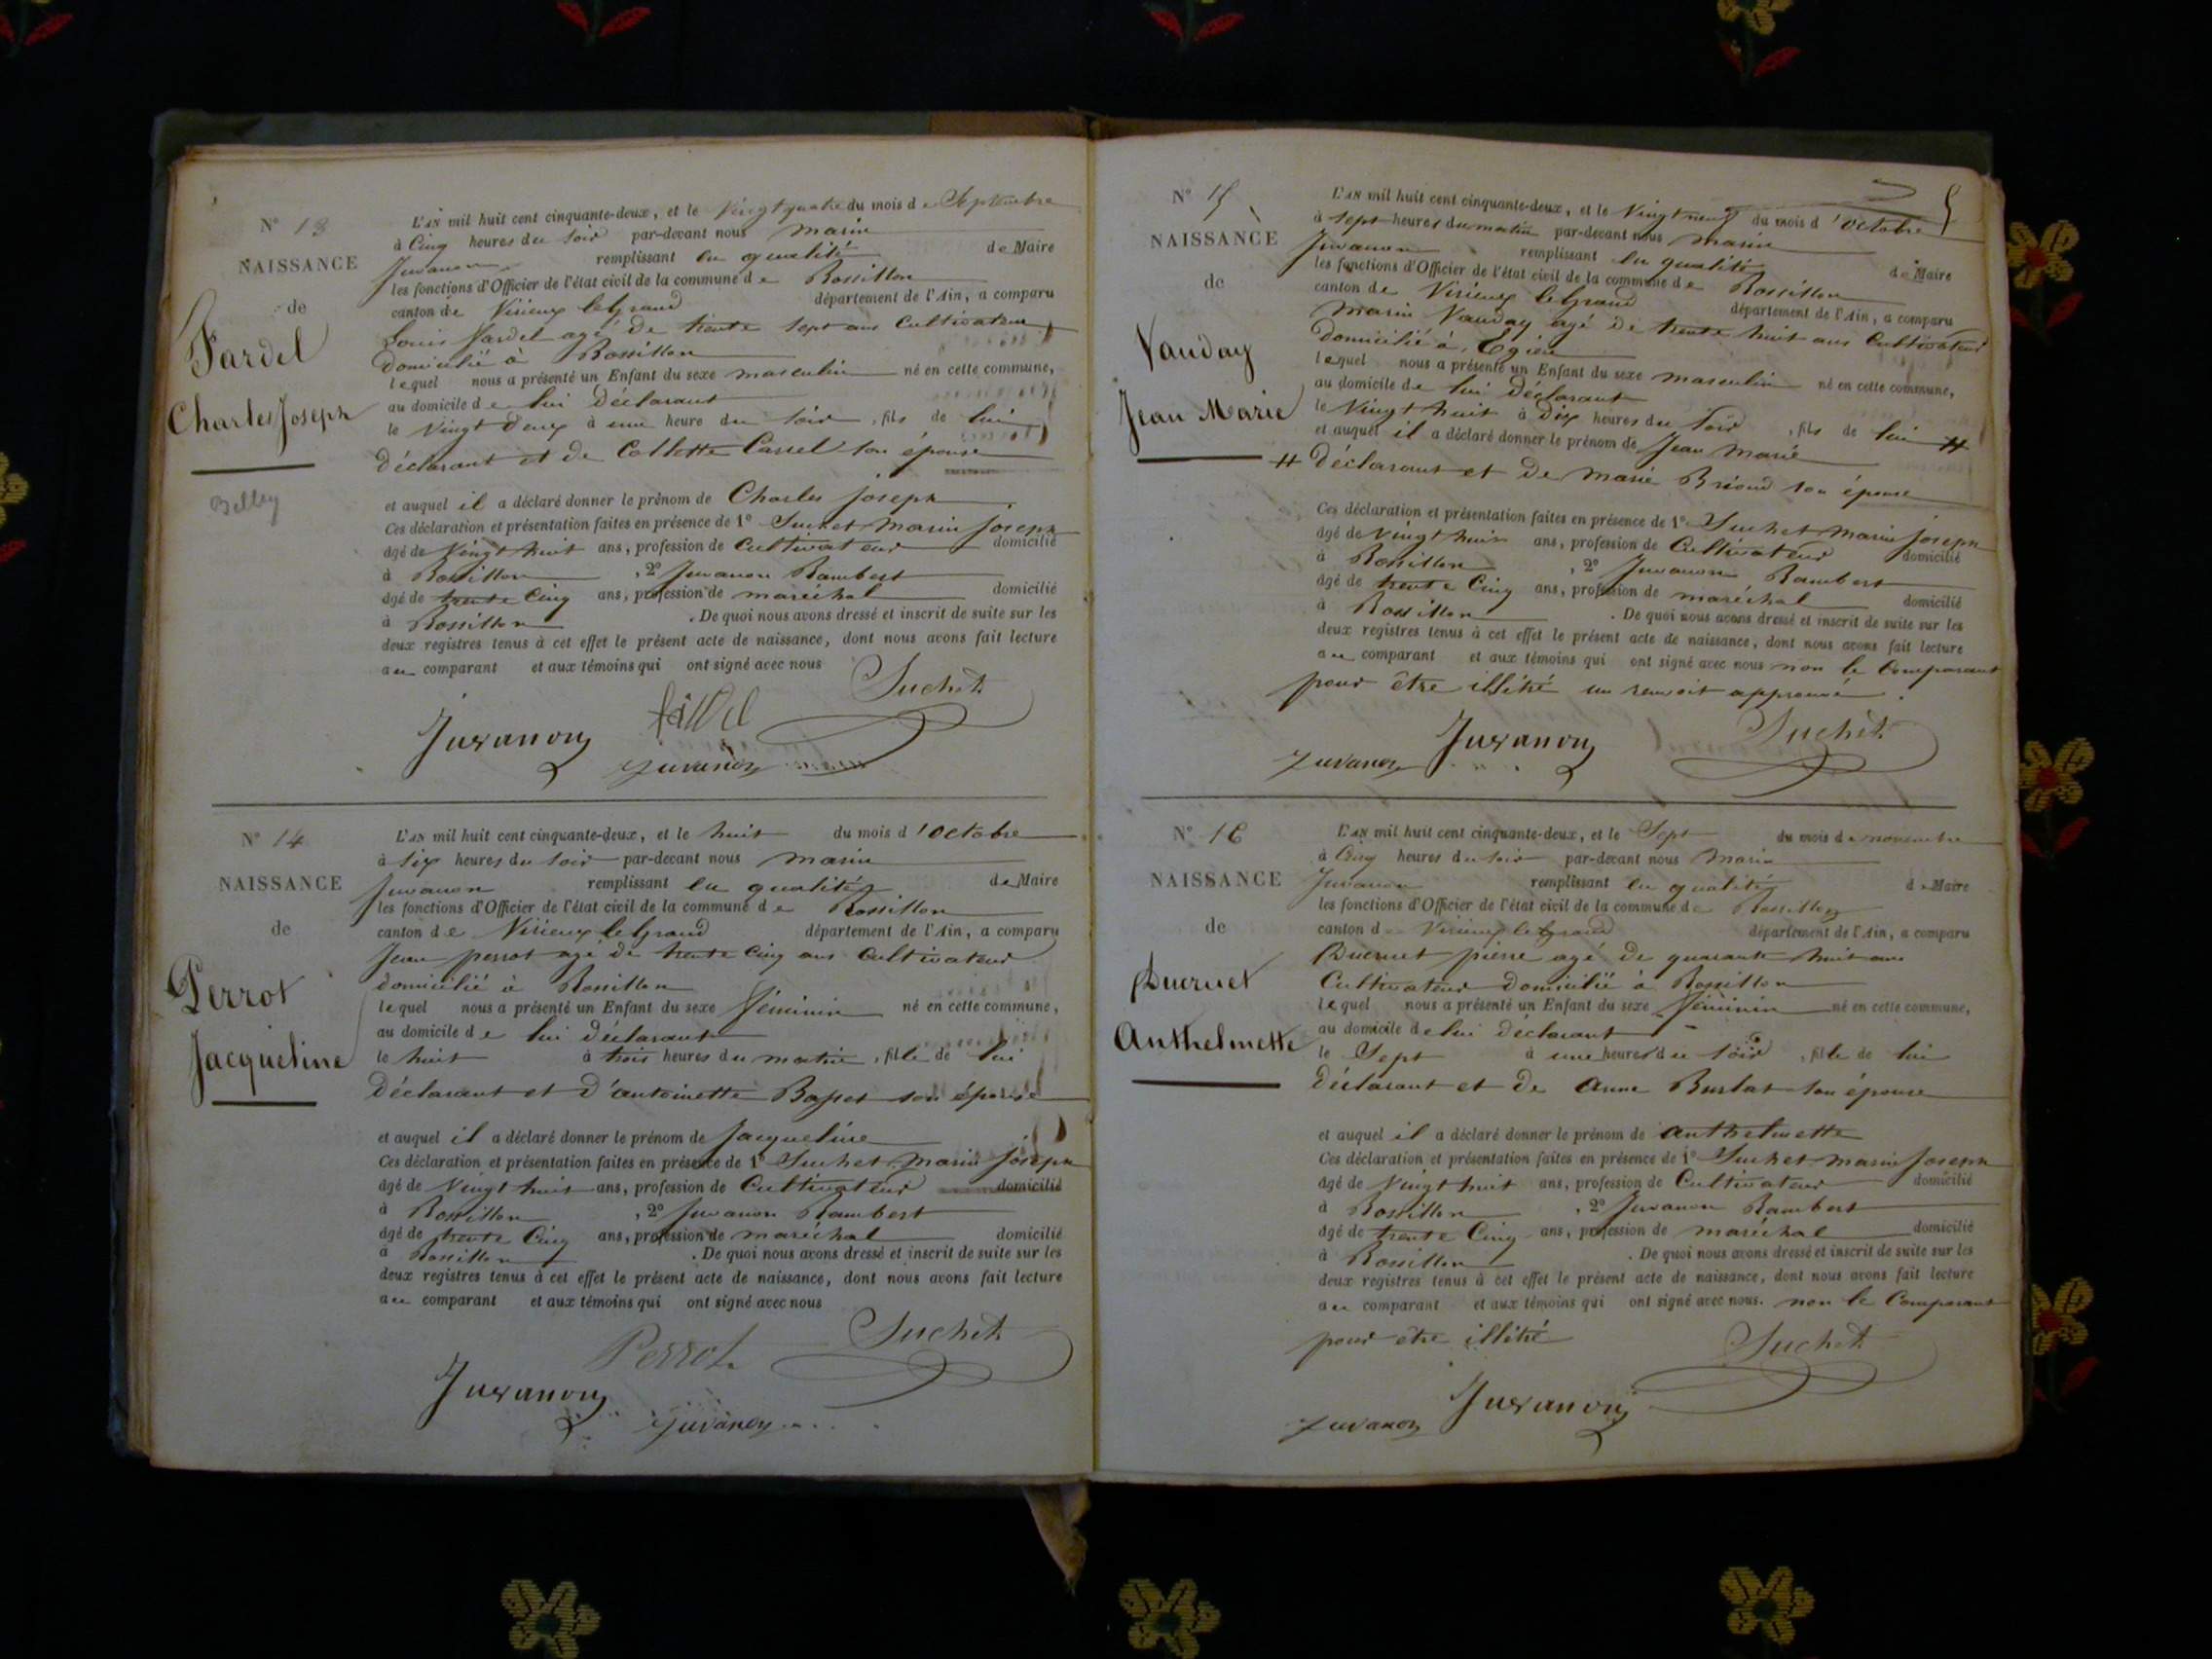 N° 13
NAISSANCE
de
Fardel
Charles Joseph
Belley
L'AN mil huit cent cinquante-deux, et le Vingt quatre du mois de Septembre
à Cinq heures du soir par-devant nous marin
Juvanon remplissant en qualité de Maire
les fonctions d'Officier de l'état civil de la commune de Rossillon
canton de Virieux le grand département de l'Ain, a comparu
Louis fardel agé de trente sept ans Cultivateur
domicilié à Rossillon
lequel nous a présenté un Enfant du sexe masculin né en cette commune,
au domicile de lui Déclarant
le Vingt deux à une heure du soir, fils de lui
Déclarant et de Collette Cassel son épouse
et auquel il a déclaré donner le prénom de Charles joseph
Ces déclaration et présentation faites en présence de 1° Suchet marin joseph
âgé de Vingt huit ans, profession de Cultivateur domicilié
à Rossillon, 2° Juvanon Rambert
âgé de trente Cinq ans, profession de maréchal domicilié
à Rossillon. De quoi nous avons dressé et inscrit de suite sur les
deux registres tenus à cet effet le présent acte de naissance, dont nous avons fait lecture
au comparant et aux témoins qui ont signé avec nous
Suchet
Juvanon
Juvanon
N° 14
NAISSANCE
de
Perrot
Jacqueline
L'AN mil huit cent cinquante-deux, et le huit du mois d'Octobre
à six heures du soir par-devant nous marin
Juvanon remplissant en qualité de Maire
les fonctions d'Officier de l'état civil de la commune de Rossillon
canton de Virieux le grand département de l'Ain, a comparu
Jean perrot agé de trente Cinq ans Cultivateur
domicilié à Rossillon
lequel nous a présenté un Enfant du sexe féminin né en cette commune,
au domicile de lui déclarant
le huit à trois heures du matin, fille de lui
Déclarant et d'antoinette Bapet son épouse
et auquel il a déclaré donner le prénom de Jacqueline
Ces déclaration et présentation faites en présence de 1° Suchet marin joseph
âgé de Vingt huit ans, profession de Cultivateur domicilié
à Rossillon, 2° Juvanon Rambert
âgé de trente Cinq ans, profession de maréchal domicilié
à Rossillon. De quoi nous avons dressé et inscrit de suite sur les
deux registres tenus à cet effet le présent acte de naissance, dont nous avons fait lecture
au comparant et aux témoins qui ont signé avec nous
Perrot Suchet
Juvanon
Juvanon
5
N° 15
NAISSANCE
de
Vauday
Jean Marie
L'AN mil huit cent cinquante-deux, et le Vingt neuf du mois d'Octobre
à sept heures du matin par-devant nous marin
Juvanon remplissant en qualité de Maire
les fonctions d'Officier de l'état civil de la commune de Rossillon
canton de Virieux le grand département de l'Ain, a comparu
marin Vauday agé de trente huit ans Cultivateur
domicilié à Egieu
lequel nous a présenté un Enfant du sexe masculin né en cette commune,
au domicile de lui Déclarant
le Vingt huit à Dix heures du soir, fils de lui #
et auquel il a déclaré donner le prénom de Jean marie
# Déclarant et de marie Briand son épouse
Ces déclaration et présentation faites en présence de 1° Suchet marin joseph
âgé de Vingt huit ans, profession de Cultivateur domicilié
à Rossillon, 2° Juvanon Rambert
âgé de trente Cinq ans, profession de maréchal domicilié
à Rossillon. De quoi nous avons dressé et inscrit de suite sur les
deux registres tenus à cet effet le présent acte de naissance, dont nous avons fait lecture
au comparant et aux témoins qui ont signé avec nous non le Comparant
pour être illétré un renvoit approuvé.
Suchet
Juvanon
Juvanon
N° 16
NAISSANCE
de
Ducruet
Anthelmette
L'AN mil huit cent cinquante-deux, et le Sept du mois de novembre
à Cinq heures du soir par-devant nous Marin
Juvanon remplissant en qualité de Maire
les fonctions d'Officier de l'état civil de la commune de Rossillon
canton d Virieux le grand département de l'Ain, a comparu
Ducruet pierre agé de quarante huit ans
Cultivateur domicilié à Rossillon
lequel nous a présenté un Enfant du sexe féminin né en cette commune,
au domicile de lui déclarant
le Sept à une heures du soir, fille de lui
Déclarant et de Anne Burlat son épouse
et auquel il a déclaré donner le prénom de anthelmette
Ces déclaration et présentation faites en présence de 1° Suchet marin Joseph
âgé de Vingt huit ans, profession de Cultivateur domicilié
à Rossillon, 2° Juvanon Rambert
âgé de trente Cinq ans, profession de maréchal domicilié
à Rossillon. De quoi nous avons dressé et inscrit de suite sur les
deux registres tenus à cet effet le présent acte de naissance, dont nous avons fait lecture
au comparant et aux témoins qui ont signé avec nous. non le Comparant
pour être illétré
Suchet
Juvanon
Juvanon